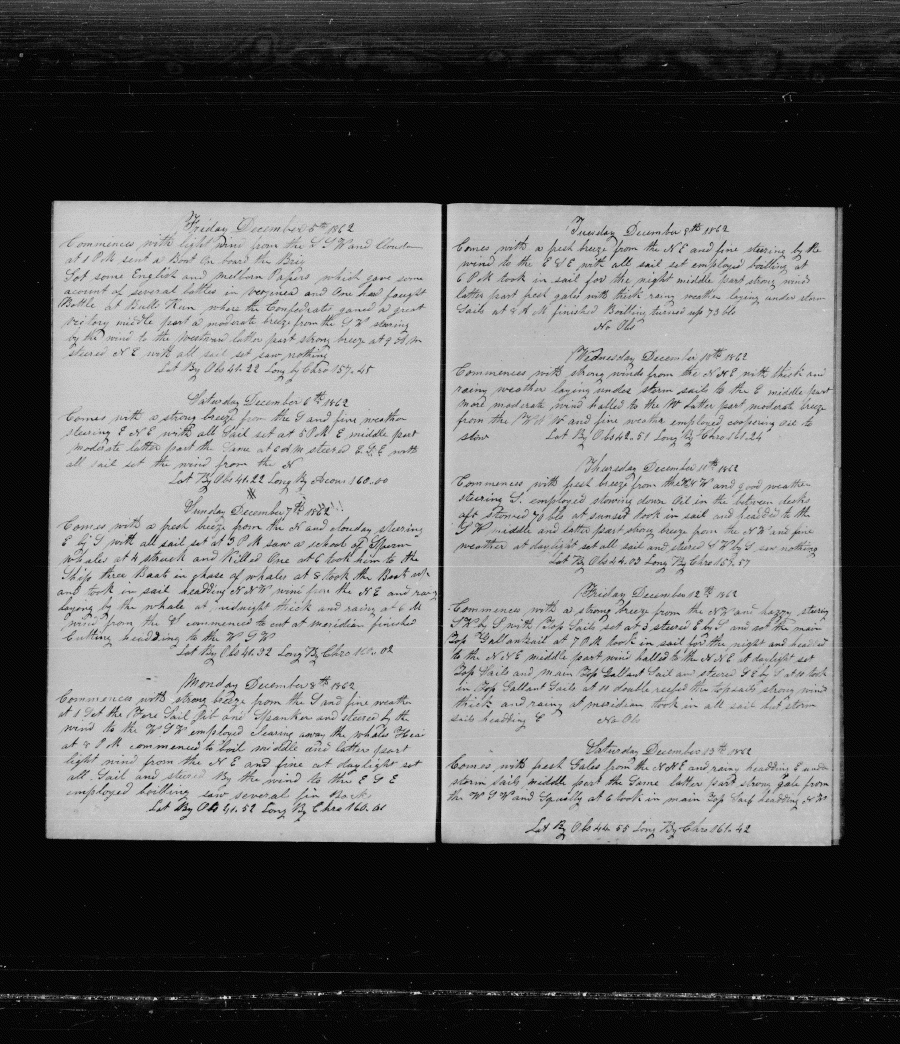 Friday December 5th 1862
Commences with light wind from the S S W and Cloudy
at 1 P M sent a Boat On board the Brig
Got some English and meltorn Papers which gave some
acount of several battles in vergenea and One hard fought
Battle at Bulls Run where the Confedrats gained a great
Victory middle part a moderate breeze from the S W stering
by the wind to the Westward latter part strong breeze at 9 A M
steered N E with all sail set saw nothing
Lat By Obs 41.22 Long by Chro 157.45
Saturday December 6th 1862
Comes with a strong breeze from the S and fine weather
steering E N E with all Sail set at 5 P M E middle part
moderate latter part the Same at 6 A M steered E S E with
all sail set the wind from the N
Lat By Obs 41.22 Long By Acoun 160.00
Sunday December 7th 1862
Comes with a fresh breeze from the N and cloudy steering
E by S with all sail set at 3 P M saw a school of Sperm
Whales at 4 struck and Killed One at 6 took him to the
Ship three Boats in chase of whales at 8 took the Boats up
and took in sail heading N N W wind from the N E and rainy
laying by the whale at midnight thick and rainy at 6 M
wind from the S commenced to cut at meridian finished
Cutting heading to the W S W
Lat By Obs 41.32 Long By Chro 160.02
Monday December 8th 1862
Commences with strong breeze from the S and fine weather
at 1 Set the Fore Sail Jib and Spanker and steered by the
wind to the W S W employed clearing away the whales Head
at 8 P M commenced to boil middle and latter part
light wind from the N E and fine at daylight set
all Sail and steered By the wind to the E S E
employed boilling saw several fin Backs
Lat By Obs 41.52 Long By Chro 160.01
Tuesday December 9th 1862
Comes with a fresh breeze from the N E and fine steering by the
wind to the E S E with all sail set employed boilling at
6 P M took in sail for the night middle part strong wind
latter part fresh gales with thick rainy weather laying under storm
Sails at 8 A M finished Boilling turned up 73 bls
No Obs
Wednesday December 10th 1862
Commences with strong winds from the N N E with thick and
rainy weather laying under storm sails to the E middle part
more moderate wind halled to the W latter part moderate breeze
from the W N W and fine weather employed coopering oil to
stow Lat By Obs 42.51 Long By Chro 161.24
Thursday December 11th 1862
Commences with fresh breeze from the N W and good weather
steering S. employed stowing down Oil in the between decks
aft stowed 70 bls at sunset took in sail and headed to the
S W middle and latter part strong breeze from the N W and fine
weather at daylight set all sail and steered S W by S. saw nothing
Lat By Obs 44.03 Long By Chro 159.57
Friday December 12th 1862
Commences with a strong breeze from the N W and hazey stering
S W by S with Top Sails set at 3 steered E by S and set the main
Top Gallantsail at 7 P M took in sail for the night and headed
to the N N E middle part wind halled to the N N E at daylight set
Top Sails and main Top Gallant Sail and steered S E by S at 10 took
in Top Gallant Sails at 11 double reefed the topsails strong wind
thick and rainy at meridian took in all sail but storm
sails heading E No Obs
Saturday December 13th 1862
Comes with fresh Gales from the N N E and rainy heading E under
storm Sails middle part the Same latter part strong gale from
the W S W and Squally at 6 took in main Top Sail heading N W
Lat By Obs 44.55 Long By Chro 161.42